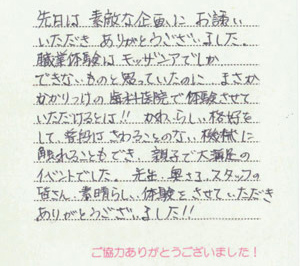 先日は 素敵な企画に お誘い
いただき ありがとうございました。
職業体験は キッザニアでしか
できないものと思っていたのに まさか
かかりつけの歯科医院で体験させて
いただけるとは!! かわいらしい格好を
して、普段はさわることのない 機械に
触れることもでき、親子で大満足の
イベントでした。 先生、奥さま、スタッフの
皆さん 素晴らしい 体験を させていただき
ありがとうございました!!
ご協力ありがとうございました!